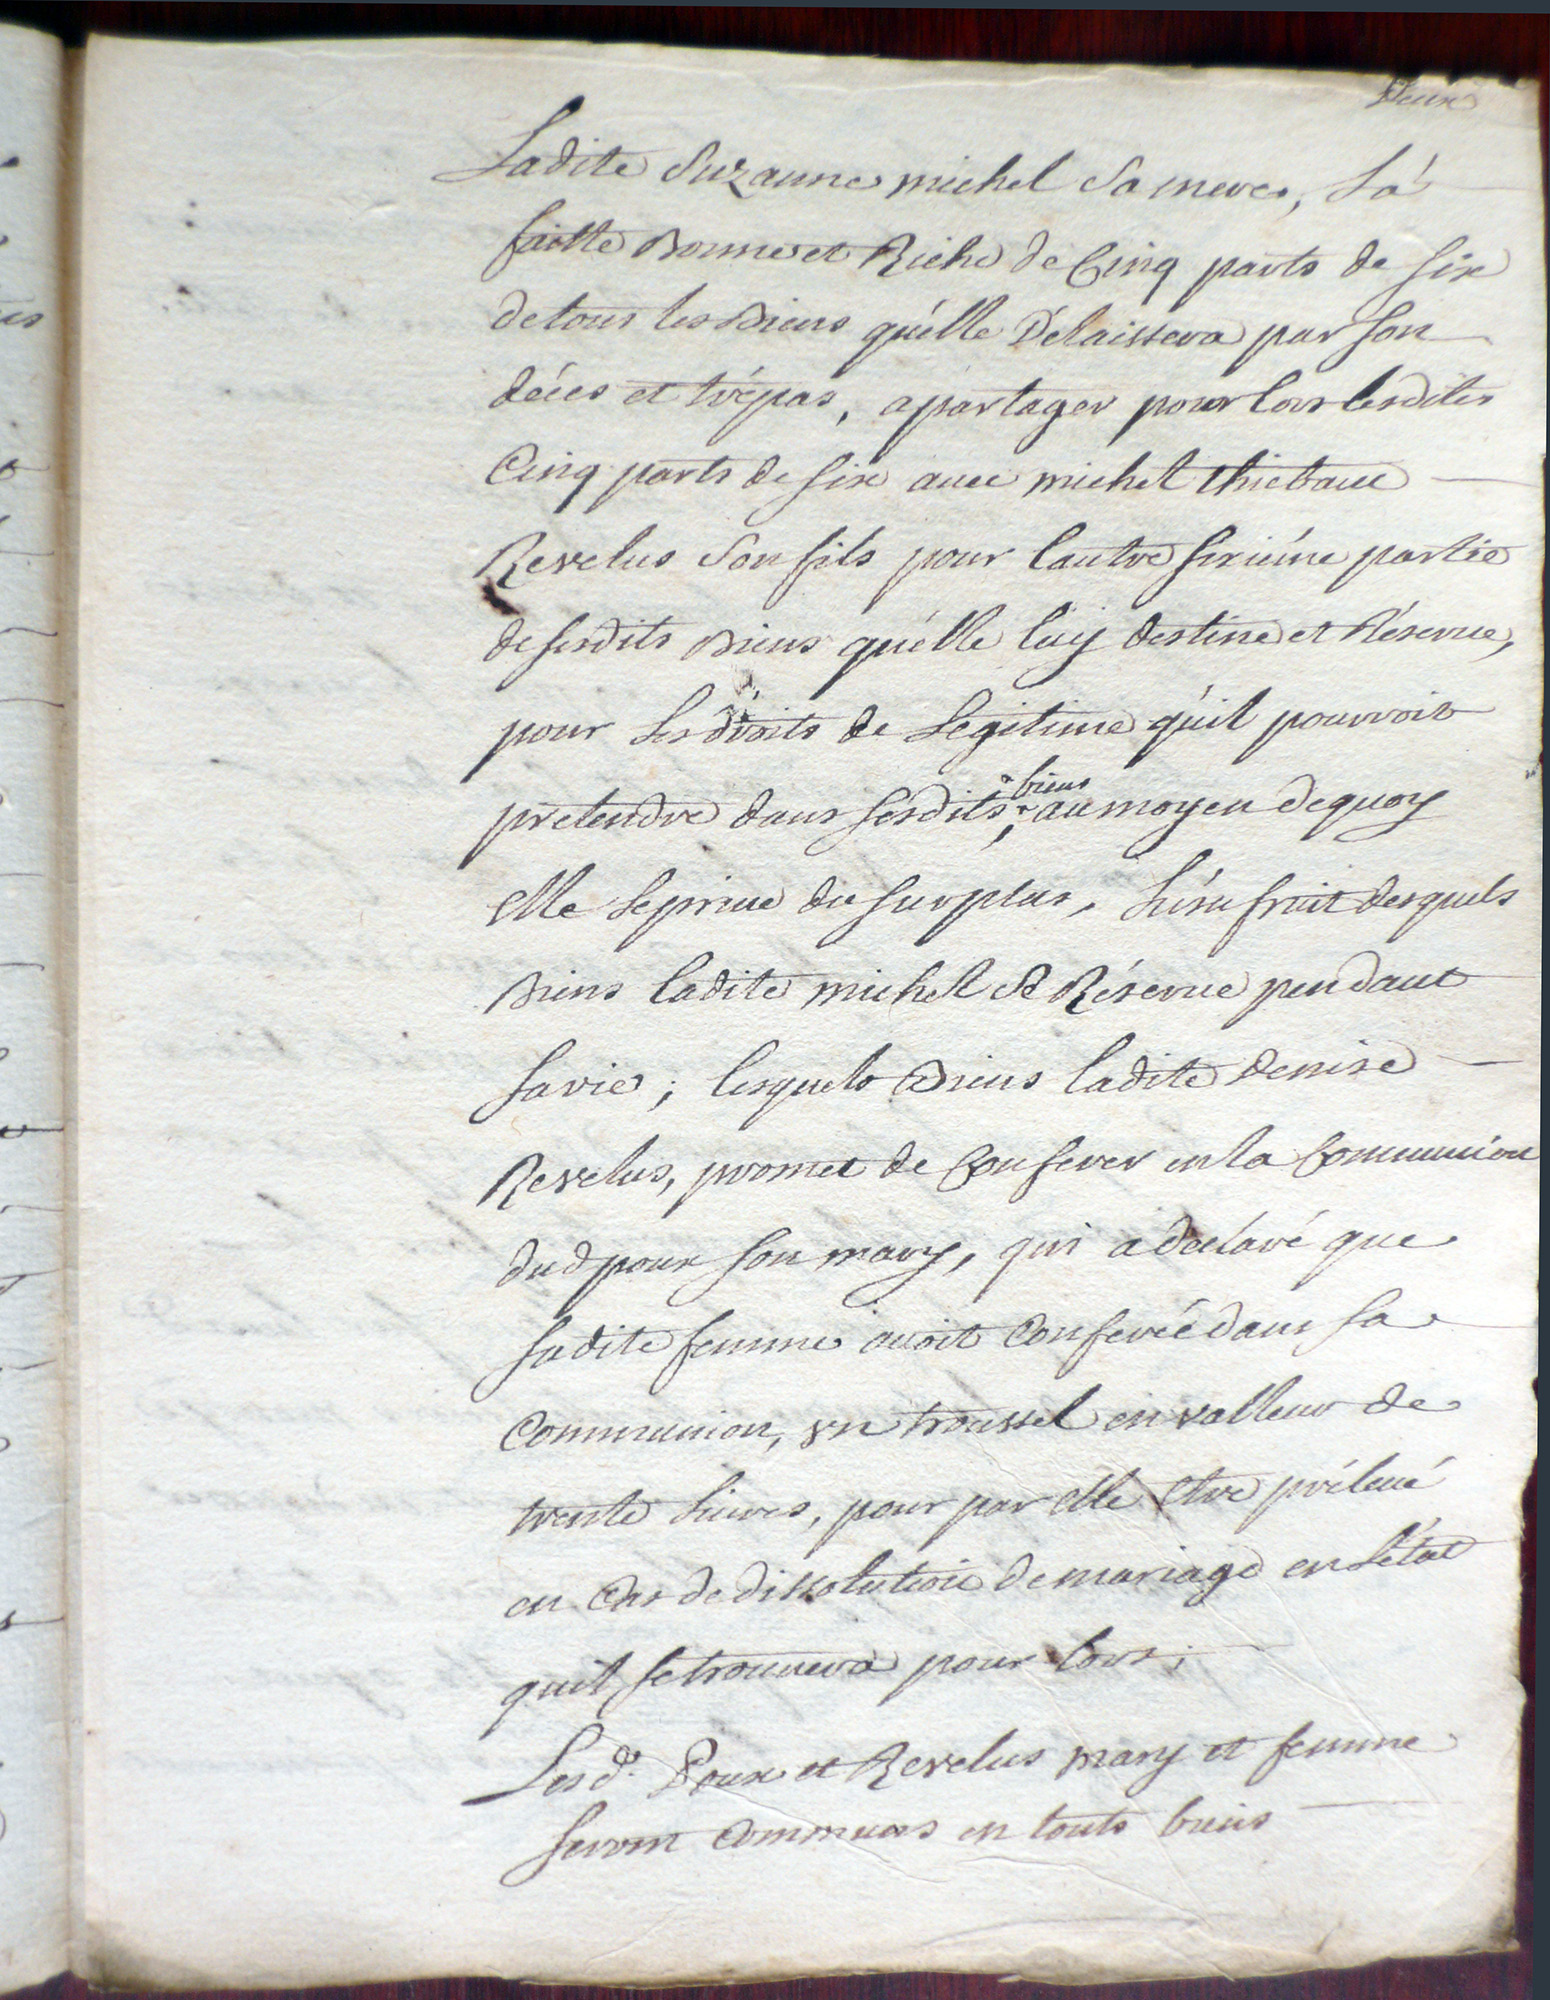 Deux
Ladite Suzanne michel Sa mere, L'a
faitte Bonne et Riche de Cinq parts de six
de tous les Biens qu'elle Délaissera par son
déces et trépas, a partager pour lors lesdites
Cinq parts de six avec michel thiebaux
Revelus son fils pour l'autre sixiéme partie
de sesdits Biens qu'elle luy destine et Réserve,
pour ses droits de Legitime qu'il pourroit
pretendre dans sesdits biens, au moyen de quoy
elle le prive du surplus, L'usufruit desquels
Biens ladite michel se Réserve pendant
sa vie ; lesquels Biens ladite denise
Revelus, promet de Conferer en la Communion
dud poux son mary, qui a declaré que
sadite femme avoit Conferéé dans sa
Communion, un troussel en valleur de
trente Livres, pour par elle etre prélevé
en Cas de dissolution de mariage en L'état
quil se trouvera pour lors ;
Lesd. Poux et Revelus mary et femme
seront Communs en touts biens